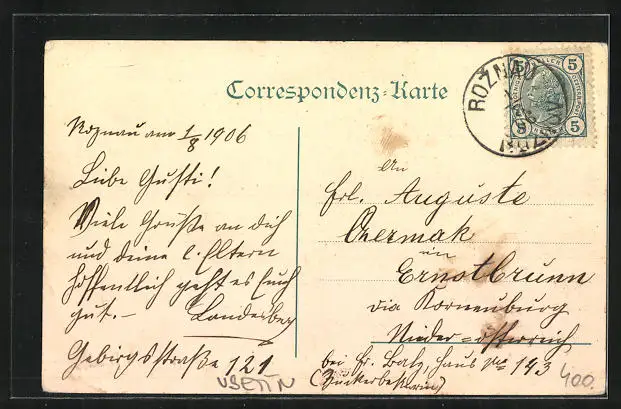 Correspondenz-Karte
ROŽNAU
5 5
5 5
Roznau am 1/8 1906
Liebe Gusti!
Viele Grüße an dich
und deine l. Eltern
hoffentlich geht es Euch
gut.-
Gebirgsstraße 121
VSETIN
An
Frl. Auguste
Czermak
in
Ernstbrunn
via Korneuburg
Nieder-österreich
bei Fr. Haus No 143
400.